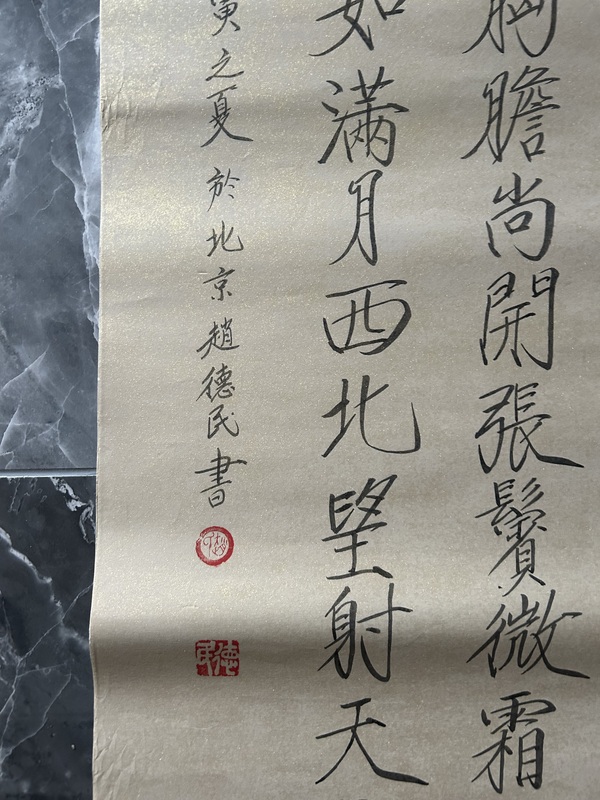 胸膽尚開張鬢微霜
如滿月西北望射天
寅之夏於北京趙德民書
趙
德民